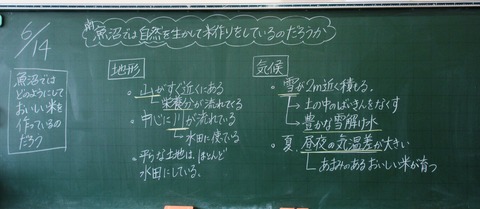 6/14
魚沼では自然を生かして米作りをしているのだろうか
魚沼では
どのようにして
おいしい米を
作っているの
だろう
地形
・山がすぐ近くにある
→栄養分が流れてくる
・中心に川が流れている
→水田に使っている
・平らな土地は、ほとんど
水田にしている。
気候
・雪が2m近く積もる。
→土の中のばいきんをなくす
→豊かな雪解け水
・夏、昼夜の気温差が大きい
→あまみのあるおいしい米が育つ